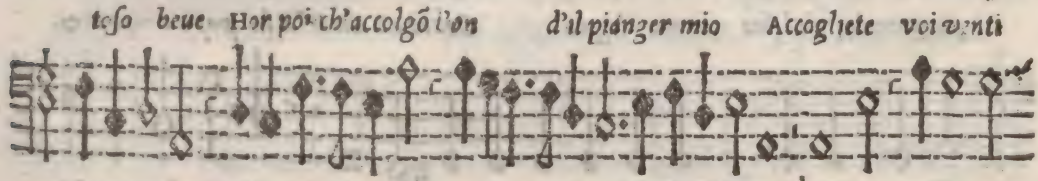 toso beue Hor poi ch'accolgõ l'on d'il pianger mio Accogliete voi venti